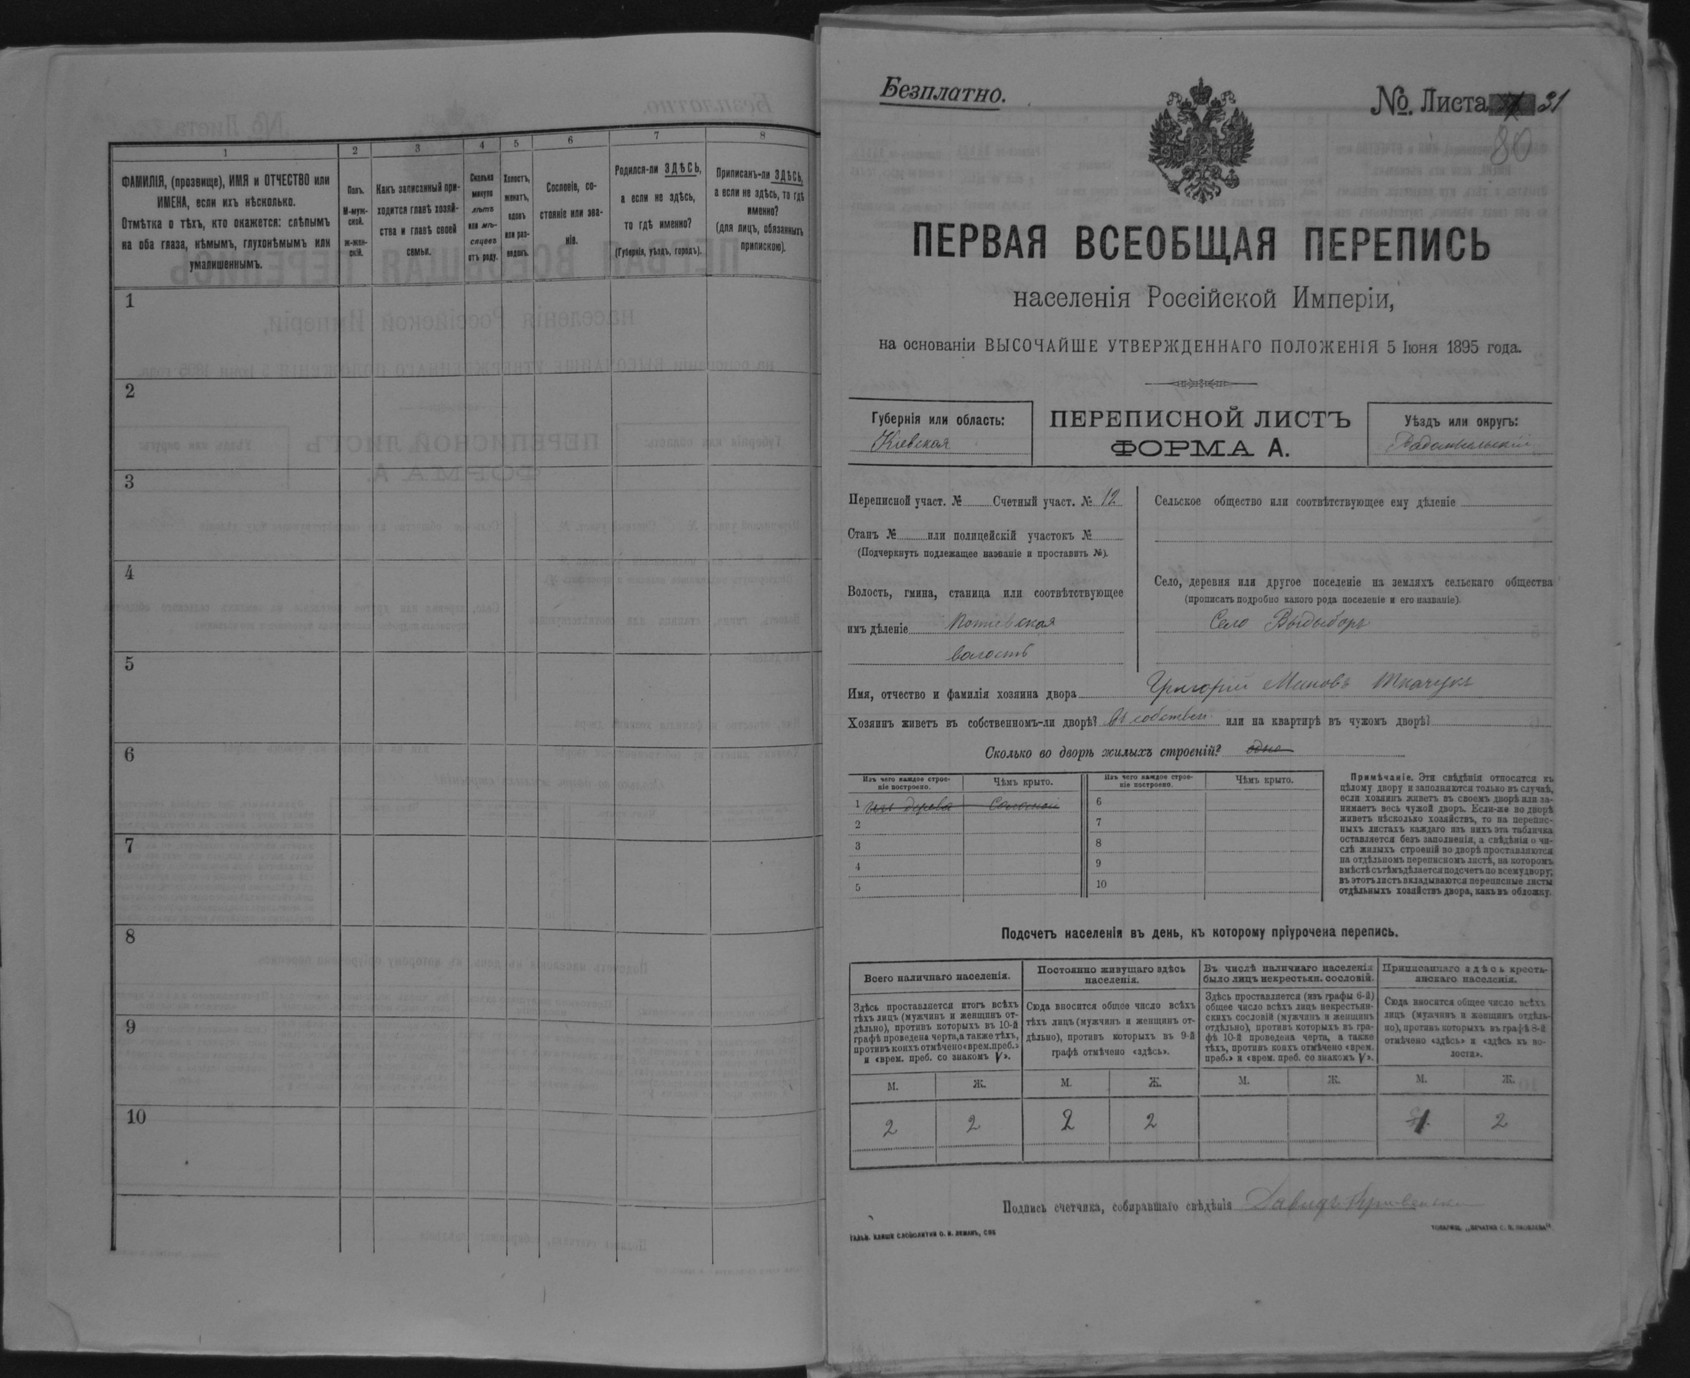 1
2
3
4
5
6
7
8
ФАМИЛІЯ, (прозвище), ИМЯ и ОТЧЕСТВО или
ИМЕНА, если ихъ нѣсколько.
Отмѣтка о тѣхъ, кто окажется: слѣпымъ
на оба глаза, нѣмымъ, глухонѣмымъ или
умалишеннымъ.
Полъ.
М-муж-
ской.
ж-жен-
скій.
Какъ записанный при-
ходится главѣ хозяй-
ства и главѣ своей
семьи.
Сколько
минуло
лѣтъ
или мѣ-
сяцевъ
отъ роду.
Холостъ,
женатъ,
вдовъ
или раз-
веденъ.
Сословіе, со-
стояніе или зва-
ніе.
Родился-ли ЗДѢСЬ,
а если не здѣсь,
то гдѣ именно?
(Губернія, уѣздъ, городъ).
Приписанъ-ли ЗДѢСЬ,
а если не здѣсь, то гдѣ
именно?
(для лицъ, обязанныхъ
припискою).
1
2
3
4
5
6
7
8
9
10
Безплатно.
№ Листа 31
80
ПЕРВАЯ ВСЕОБЩАЯ ПЕРЕПИСЬ
населенія Россійской Имперіи,
на основаніи ВЫСОЧАЙШЕ УТВЕРЖДЕННАГО ПОЛОЖЕНІЯ 5 Іюня 1895 года.
Губернія или область:
Кіевская
ПЕРЕПИСНОЙ ЛИСТЪ
ФОРМА А.
Уѣздъ или округъ:
Радомысльскій
Переписной участ. № Счетный участ. № 12
Станъ № или полицейскій участокъ №
(Подчеркнуть подлежащее названіе и проставить №).
Волость, гмина, станица или соотвѣтствующее
имъ дѣленіе Потіевская
волость
Сельское общество или соотвѣтствующее ему дѣленіе
Село, деревня или другое поселеніе на земляхъ сельскаго общества
(прописать подробно какого рода поселеніе и его названіе).
Село Выдыборъ
Имя, отчество и фамилія хозяина двора Григорій Миновъ Ткачукъ
Хозяинъ живетъ въ собственномъ-ли дворѣ? въ собствен. или на квартирѣ въ чужомъ дворѣ?
Сколько во дворѣ жилыхъ строеній? одно
Изъ чего каждое строе-
ніе построено.
Чѣмъ крыто.
Изъ чего каждое строе-
ніе построено.
Чѣмъ крыто.
1 изъ дерева Соломою
2
3
4
5
6
7
8
9
10
Примѣчаніе. Эти свѣдѣнія относятся къ
цѣлому двору и заполняются только въ случаѣ,
если хозяинъ живетъ въ своемъ дворѣ или за-
нимаетъ весь чужой дворъ. Если-же во дворѣ
живетъ нѣсколько хозяйствъ, то на перепис-
ныхъ листахъ каждаго изъ нихъ эта табличка
оставляется безъ заполненія, а свѣдѣнія о чи-
слѣ жилыхъ строеній во дворѣ проставляются
на отдѣльномъ переписномъ листѣ, на которомъ
вмѣстѣ съ тѣмъ дѣлается подсчетъ по всему двору;
въ этотъ листъ вкладываются переписные листы
отдѣльныхъ хозяйствъ двора, какъ въ обложку.
Подсчетъ населенія въ день, къ которому пріурочена перепись.
Всего наличнаго населенія.
Здѣсь проставляется итогъ всѣхъ
тѣхъ лицъ (мужчинъ и женщинъ от-
дѣльно), противъ которыхъ въ 10-й
графѣ проведена черта, а также тѣхъ,
противъ коихъ отмѣчено «врем. преб.»
и «врем. преб. со знакомъ V».
Постоянно живущаго здѣсь
населенія.
Сюда вносится общее число всѣхъ
тѣхъ лицъ (мужчинъ и женщинъ от-
дѣльно), противъ которыхъ въ 9-й
графѣ отмѣчено «здѣсь».
Въ числѣ наличнаго населенія
было лицъ некрестьян. сословій.
Здѣсь проставляется (изъ графы 6-й)
общее число всѣхъ лицъ некрестьян-
скихъ сословій (мужчинъ и женщинъ
отдѣльно), противъ которыхъ въ гра-
фѣ 10-й проведена черта, а также
тѣхъ, противъ коихъ отмѣчено «врем.
преб.» и «врем. преб. со знакомъ V».
Приписаннаго здѣсь кресть-
янскаго населенія.
Сюда вносится общее число всѣхъ
лицъ (мужчинъ и женщинъ отдѣль-
но), противъ которыхъ въ графѣ 8-й
отмѣчено «здѣсь» и «здѣсь въ во-
лости».
М. Ж. М. Ж. М. Ж. М. Ж.
2 2 2 2 1 2
Подпись счетчика, собиравшаго свѣдѣнія Давидъ
ГАЛЬВ. КЛИШЕ СЛОВОЛИТНИ О. И. ЛЕМАНЪ, СПБ
ТОВАРИЩ. „ПЕЧАТНЯ С. П. ЯКОВЛЕВА“.